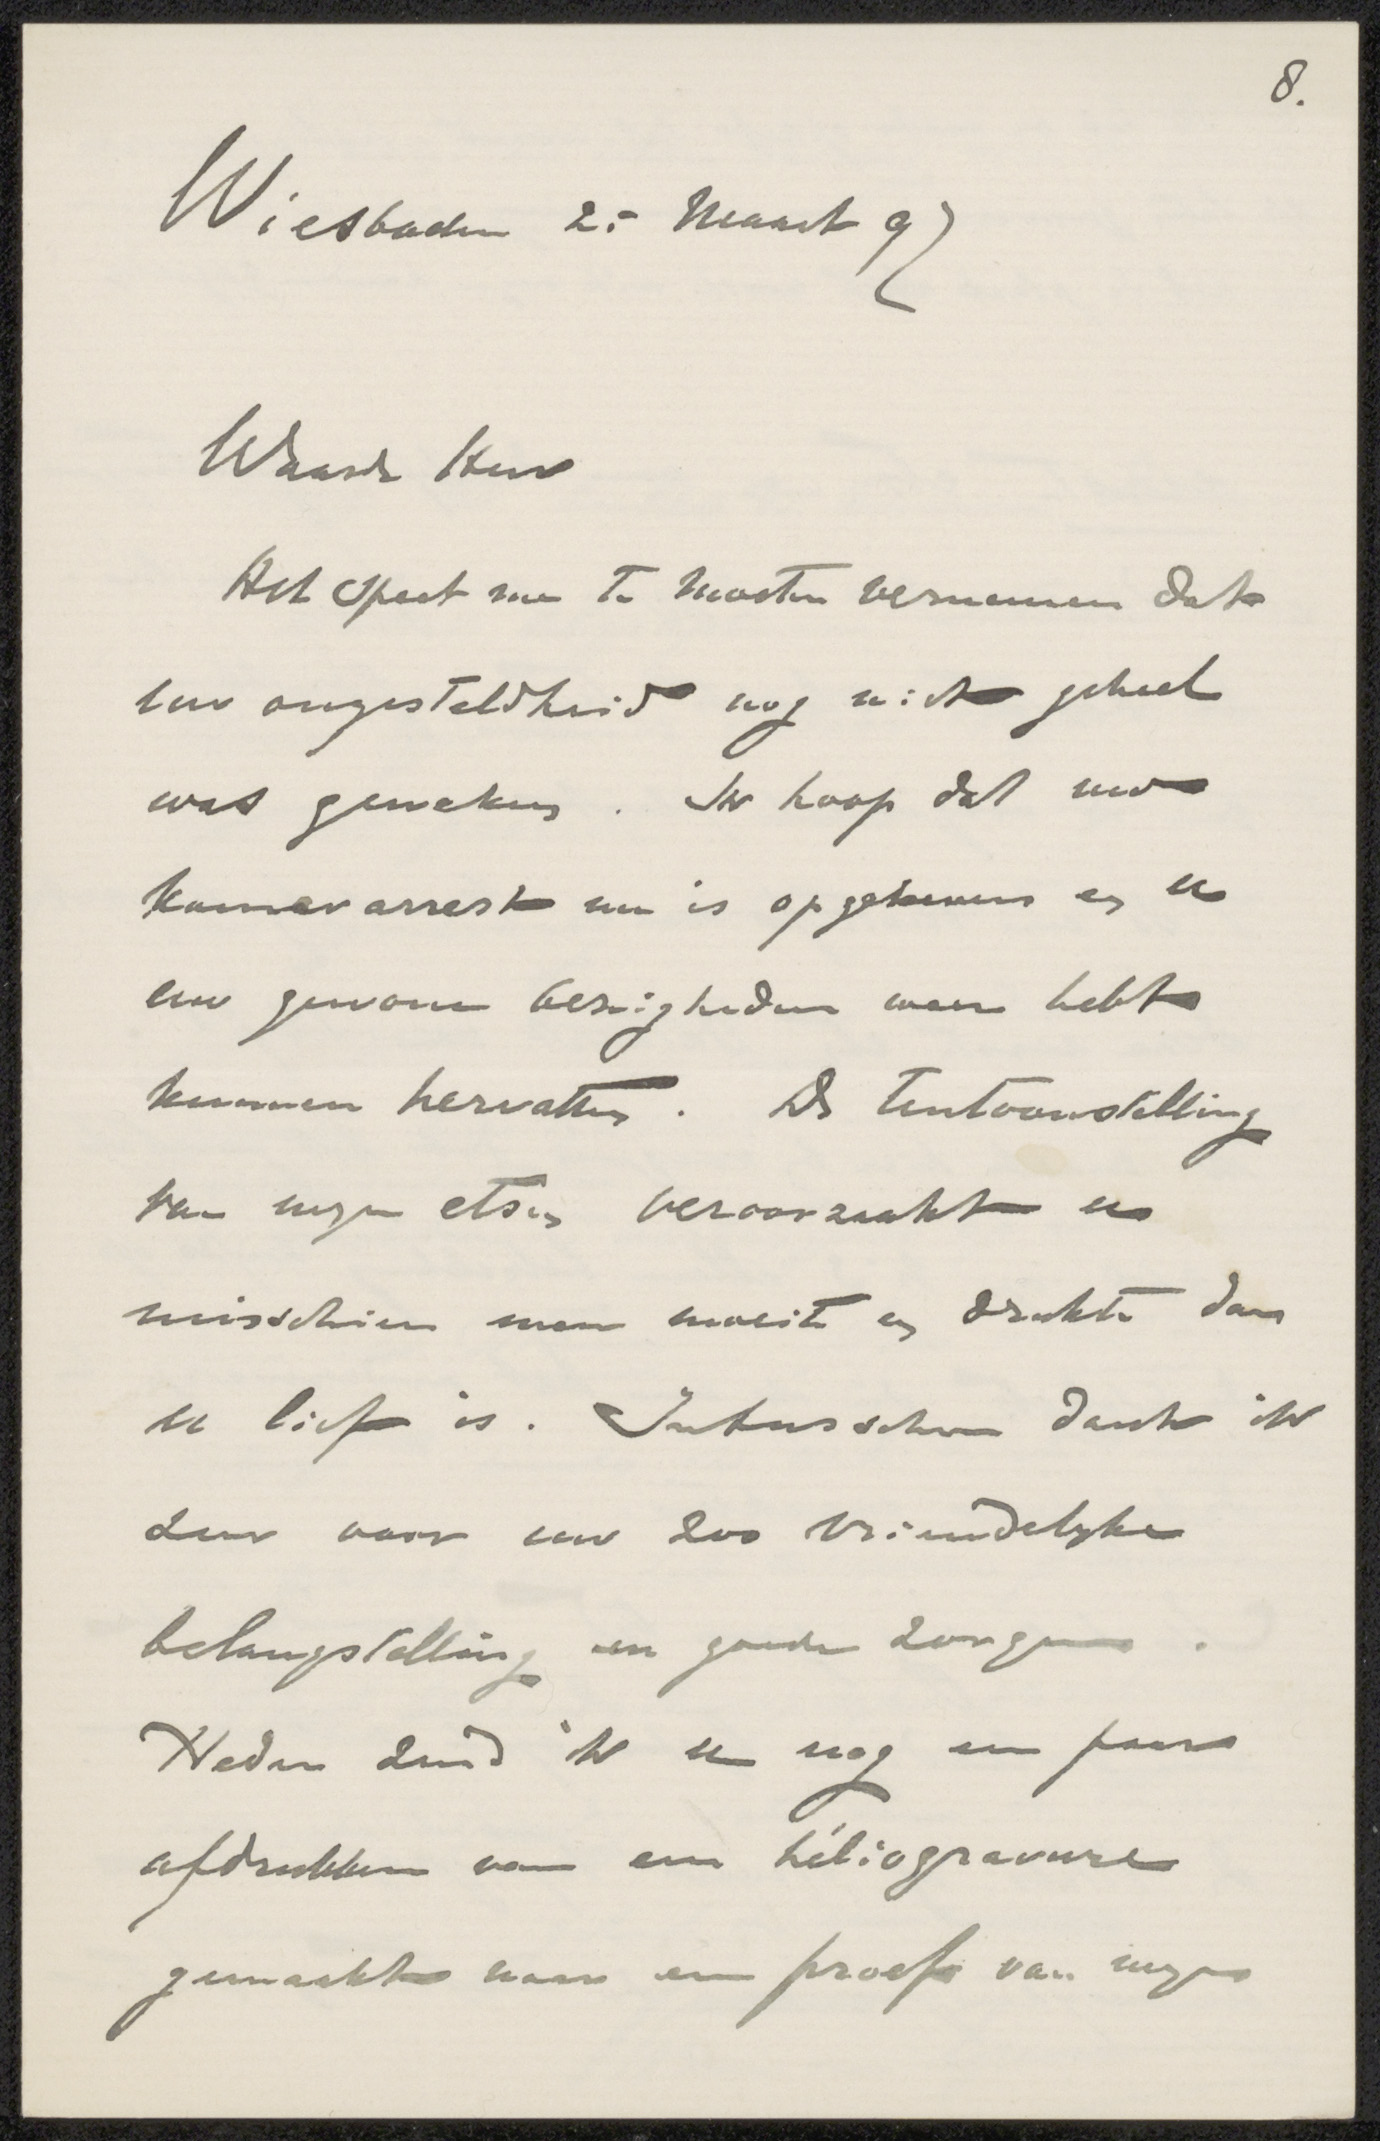 8.
Wiesbaden 25 Maart 97
Waarde Heer
Het speet me te moeten vernemen dat
uw ongesteldheid nog niet geheel
was geweken. Ik hoop dat uw
kamerarrest nu is opgeheven en u
uw gewone bezigheden weer hebt
kunnen hervatten. De tentoonstelling
van mijn etsen veroorzaakt u
misschien meer moeite en drukte dan
u lief is. Intusschen dank ik
zeer voor uw zoo vriendelijke
belangstelling en goede zorgen.
Heden zend ik u nog een paar
afdrukken van een héliogravure
gemaakt naar een proef van mijn